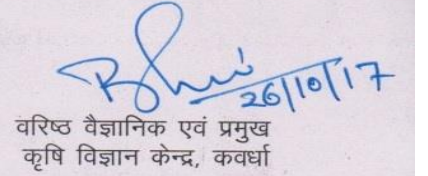 26/10/17
वरिष्ठ वैज्ञानिक एवं प्रमुख
कृषि विज्ञान केन्द्र, कवर्धा